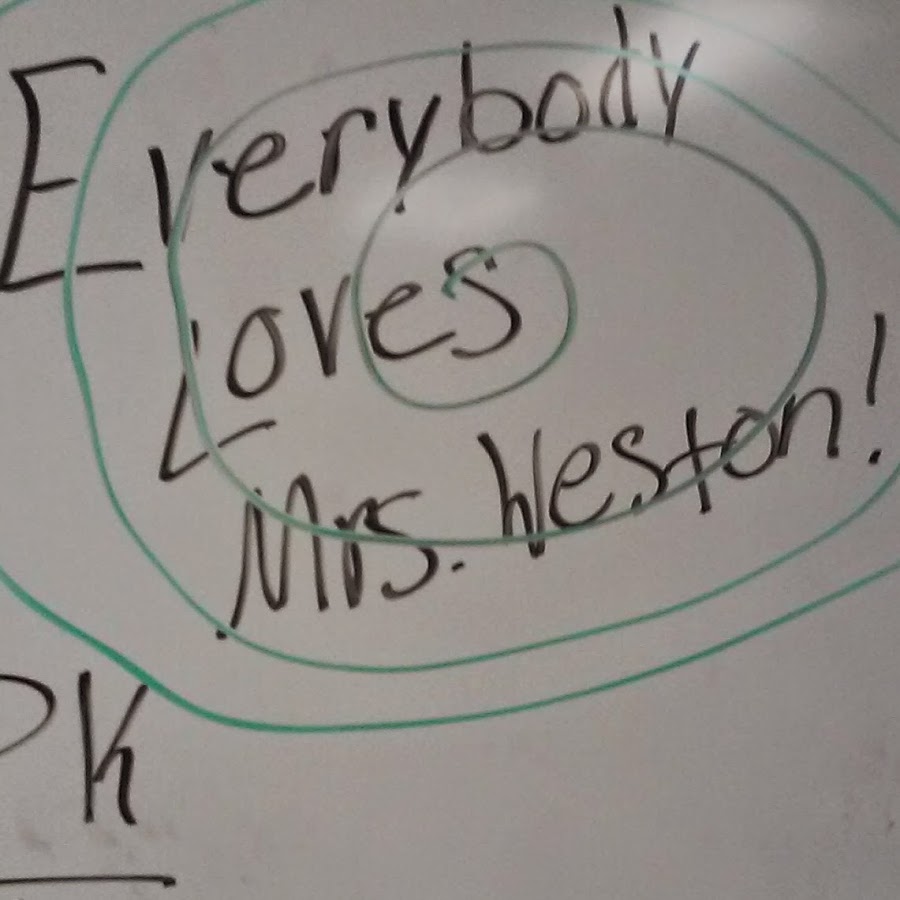 Everybody
Loves
Mrs. Weston!
PK